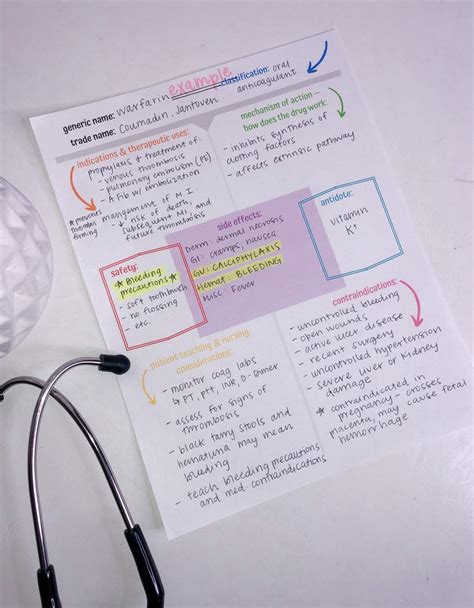 example
generic name: warfarin
classification: oral anticoagulant
trade name: Coumadin, Jantoven
indications & therapeutic uses:
propylaxis & treatment of:
- venous thrombosis
- pulmonary embolism (PE)
- A Fib w/ embolization
* prevents thrombus firming
management of M.I.
- ↓ risk of death,
subsequent MI, and
future thrombosis
mechanism of action –
how does the drug work:
- inhibits synthesis of
clotting factors
- affects extrinsic pathway
safety:
* Bleeding
precautions *
- soft toothbrush
- no flossing
- etc.
side effects:
Derm: dermal necrosis
GI: cramps, nausea
GU: CALCIPHYLAXIS
Hemat: BLEEDING
Misc: Fever
antidote:
vitamin
K+
patient teaching & nursing
considerations:
- monitor coag labs
↳ PT, PTT, INR, D-Dimer
- assess for signs of
thrombosis
- black tarry stools and
hematuria may mean
bleeding
- teach bleeding precautions
and med. contraindications
contraindications:
- uncontrolled bleeding
- open wounds
- active ulcer disease
- recent surgery
- uncontrolled hypertension
- severe liver or kidney
damage
* contraindicated in
pregnancy - crosses
placenta, may cause fetal
hemorrhage